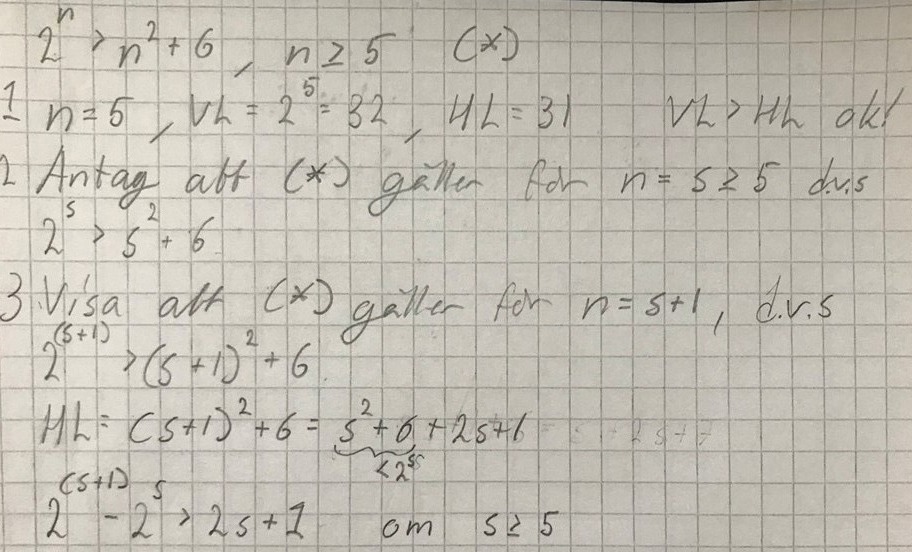 2^n > n^2 + 6, n ≥ 5 (*)
1 n = 5, VL = 2^5 = 32, HL = 31 VL > HL ok!
2 Antag att (*) gäller för n = s ≥ 5 d.v.s
2^s > s^2 + 6
3 Visa att (*) gäller för n = s+1, d.v.s
2^(s+1) > (s+1)^2 + 6
HL = (s+1)^2 + 6 = s^2 + 6 + 2s + 1
< 2^s
2^(s+1) - 2^s > 2s + 1 om s ≥ 5